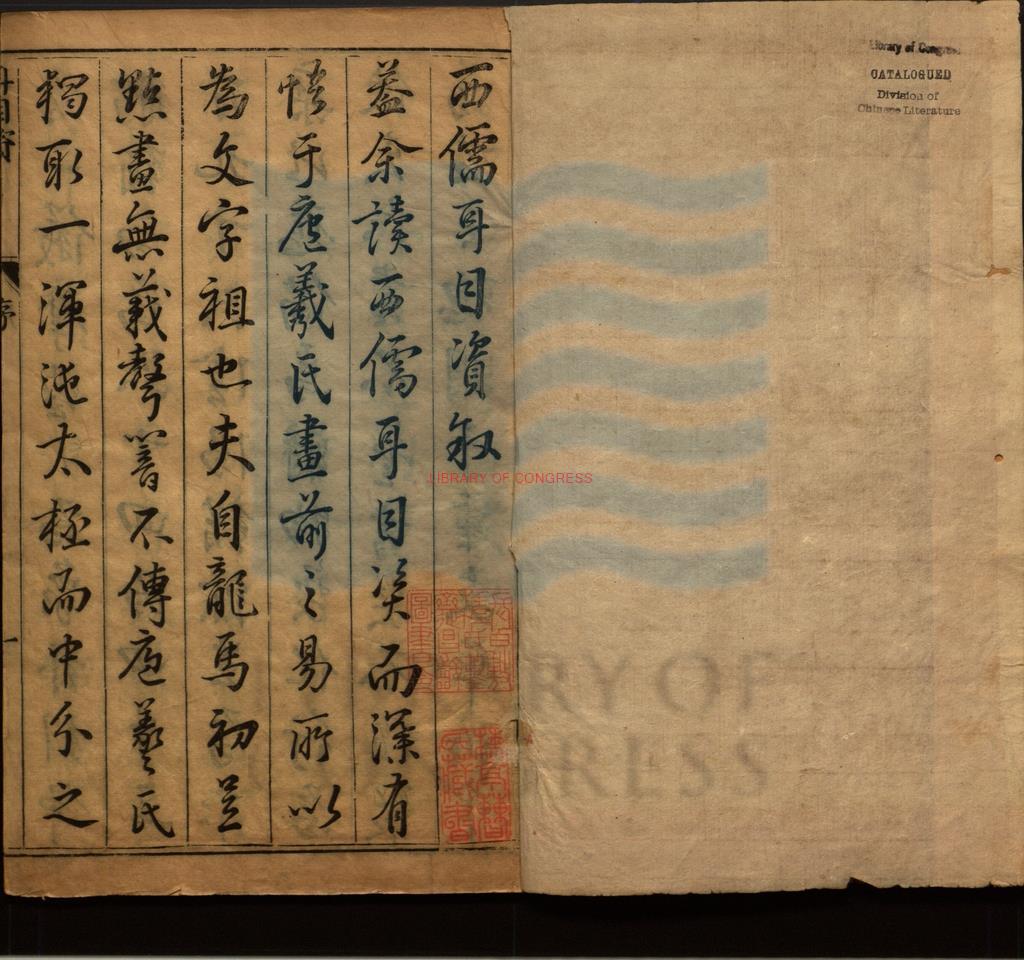 西儒耳目資敘
葢余讀西儒耳目資而深有
悟于庖羲氏畫前之易所以
為文字祖也夫自龍馬初呈
點畫無義聲音不傳庖羲氏
獨取一渾沌太極而中分之
序
一
Library of Congress
CATALOGUED
Division of
Chinese Literature
LIBRARY OF CONGRESS
RY OF
RESS